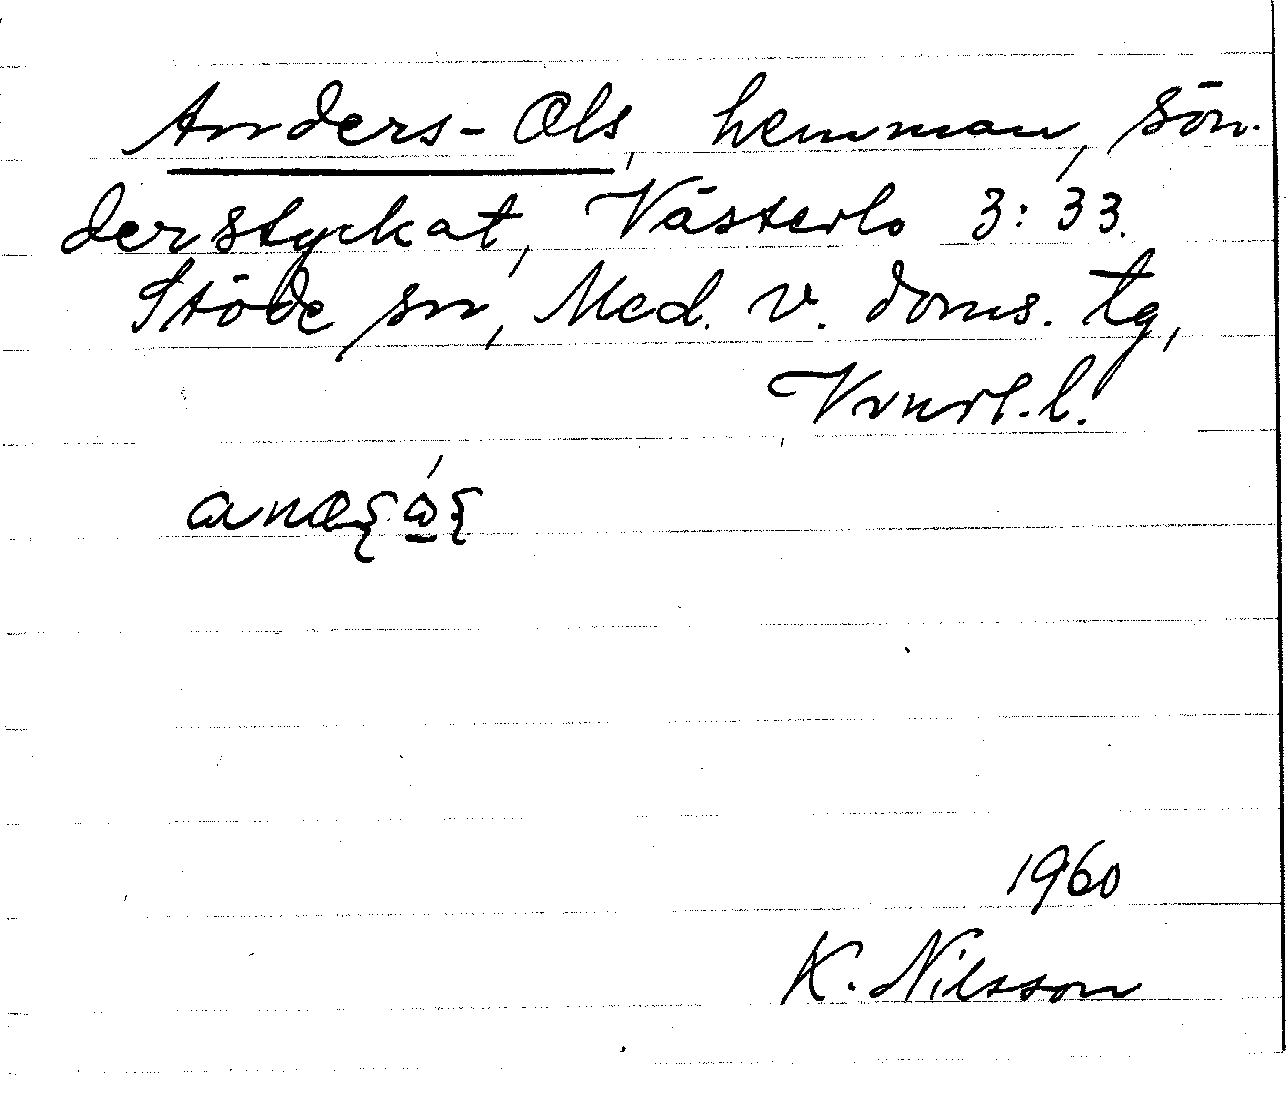 Anders-Ols, hemman, sön-
derstyckat, Västerlo 3:33.
Stöde sn, Med. v. doms. tg,
Vrnrl. l.
1960
K. Nilsson